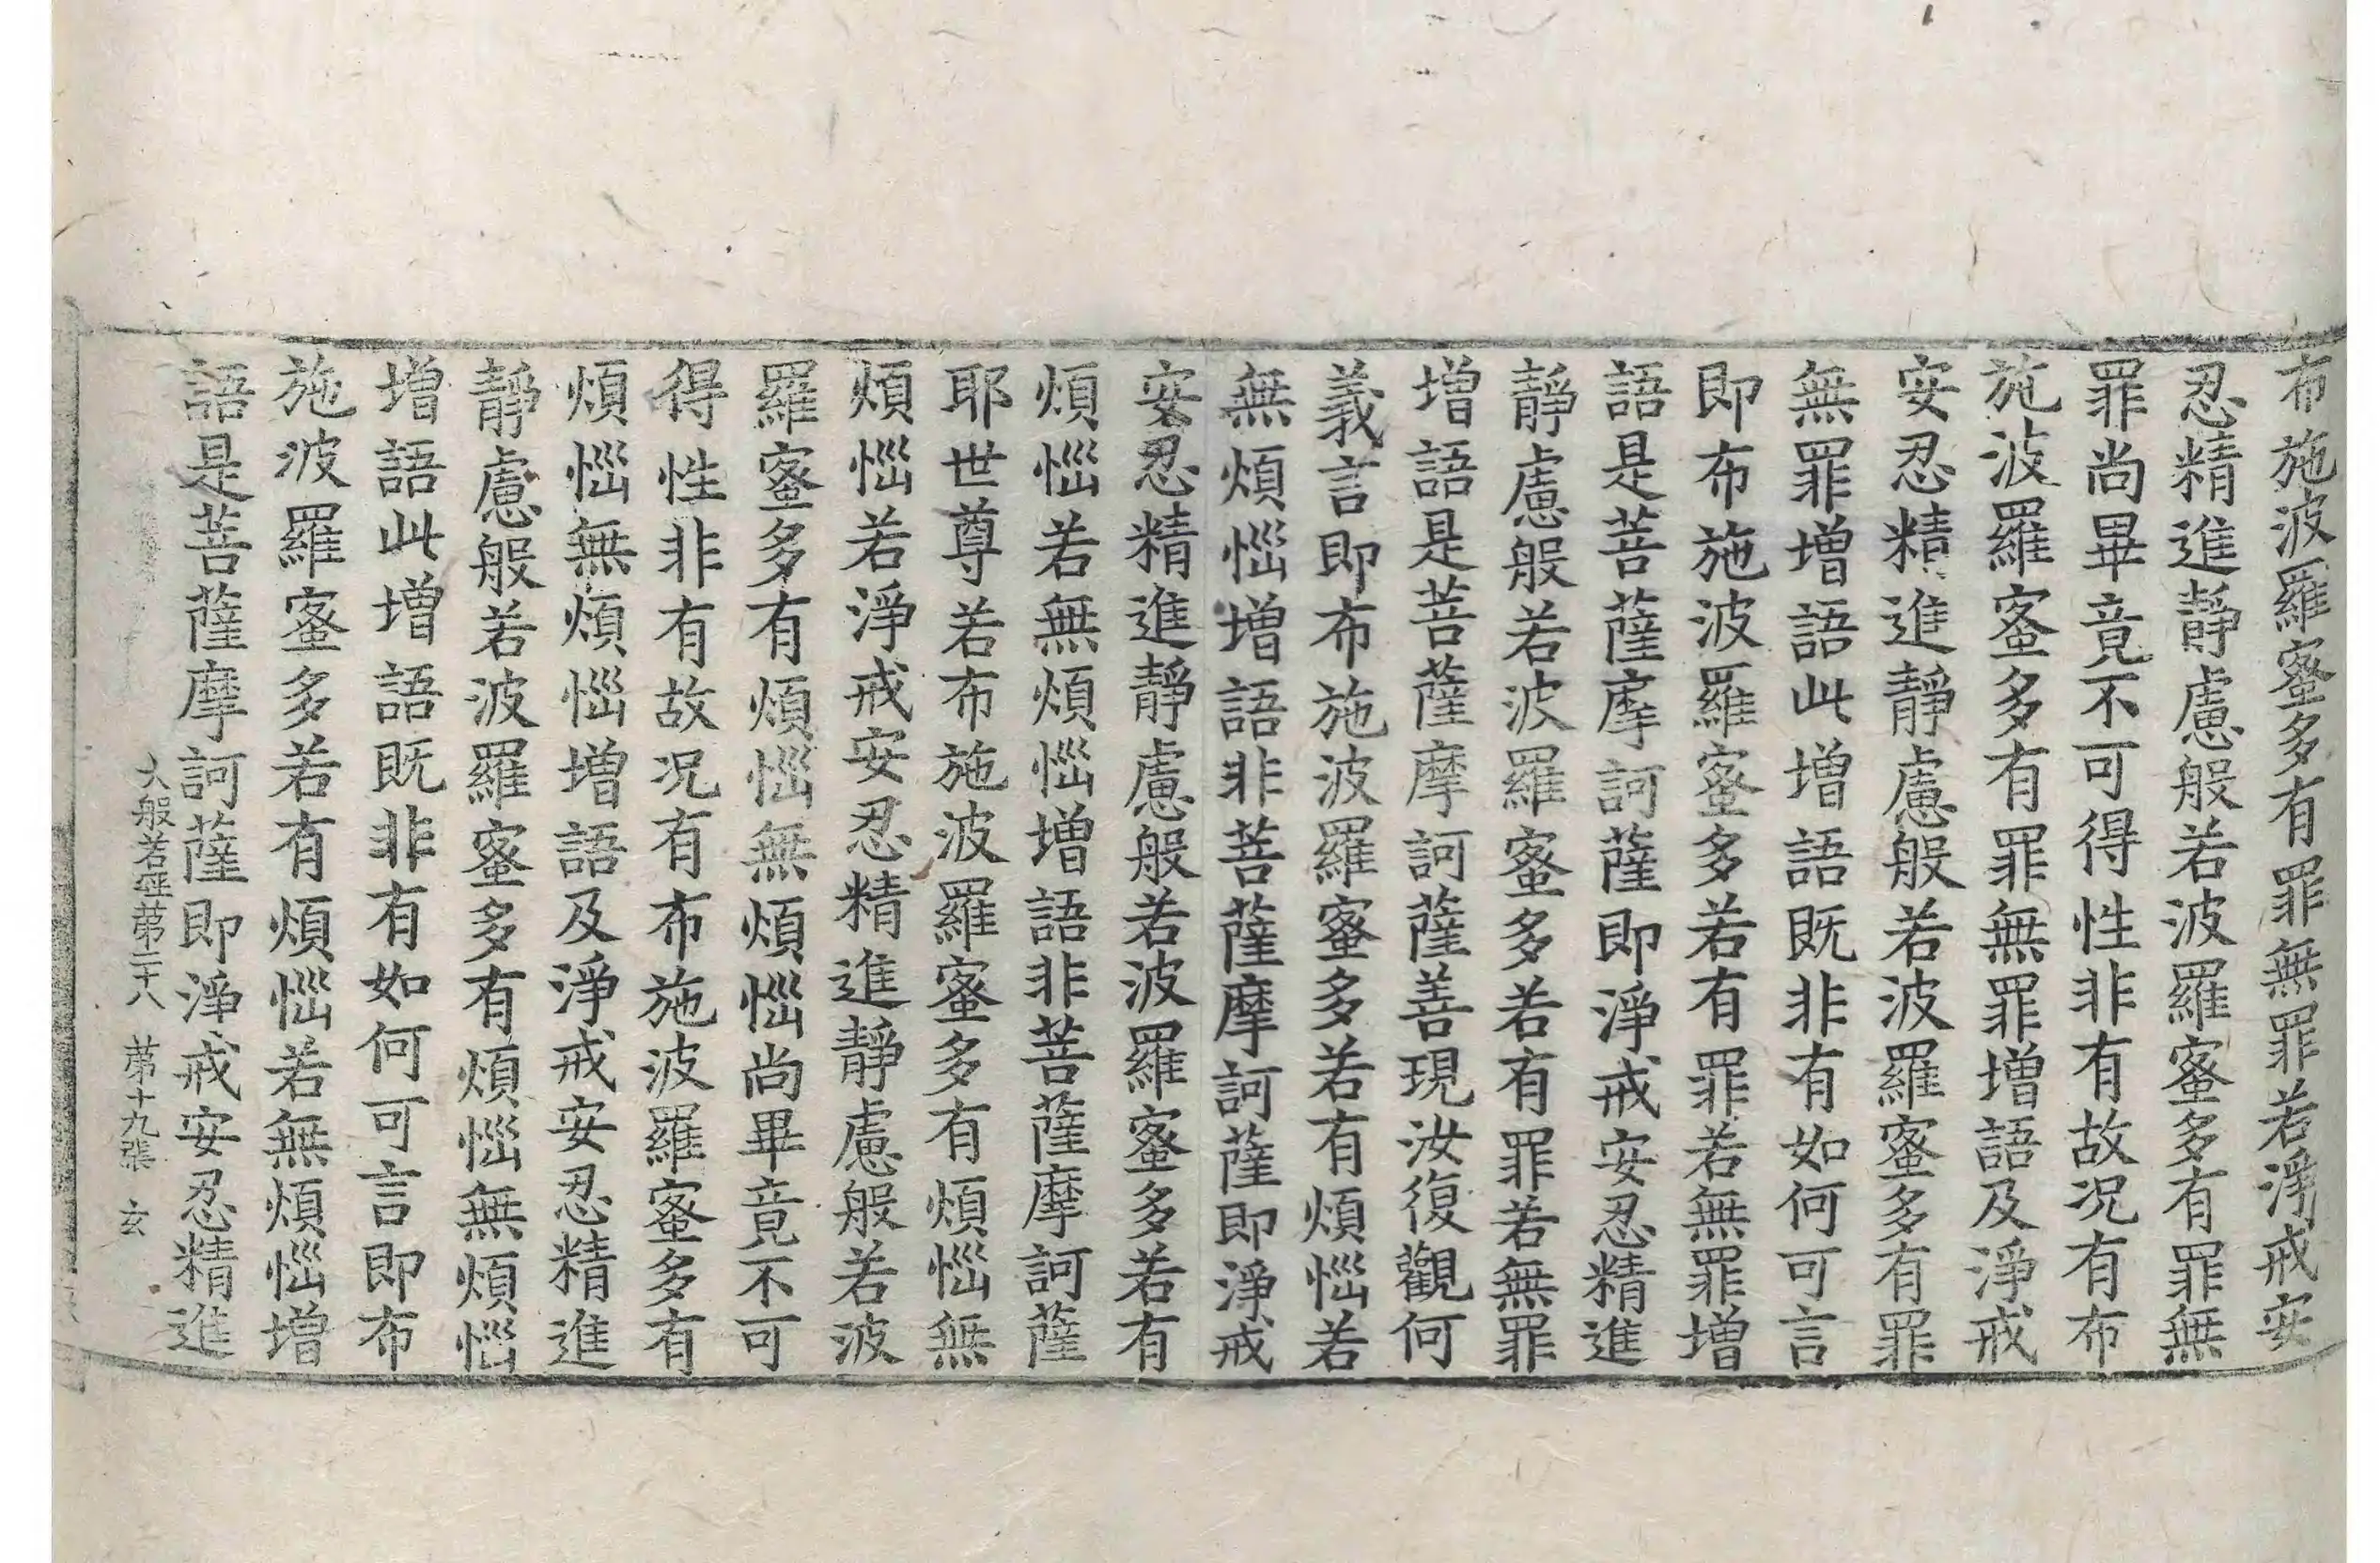 布施波羅蜜多有罪無罪若淨戒安
忍精進靜慮般若波羅蜜多有罪無
罪尚畢竟不可得性非有故況有布
施波羅蜜多有罪無罪增語及淨戒
安忍精進靜慮般若波羅蜜多有罪
無罪增語此增語既非有如何可言
即布施波羅蜜多若有罪若無罪增
語是菩薩摩訶薩即淨戒安忍精進
靜慮般若波羅蜜多若有罪若無罪
增語是菩薩摩訶薩善現汝復觀何
義言即布施波羅蜜多若有煩惱若
無煩惱增語非菩薩摩訶薩即淨戒
安忍精進靜慮般若波羅蜜多若有
煩惱若無煩惱增語非菩薩摩訶薩
耶世尊若布施波羅蜜多有煩惱無
煩惱若淨戒安忍精進靜慮般若波
羅蜜多有煩惱無煩惱尚畢竟不可
得性非有故況有布施波羅蜜多有
煩惱無煩惱增語及淨戒安忍精進
靜慮般若波羅蜜多有煩惱無煩惱
增語此增語既非有如何可言即布
施波羅蜜多若有煩惱若無煩惱增
語是菩薩摩訶薩即淨戒安忍精進
大般若經第二十八 第十九張 玄